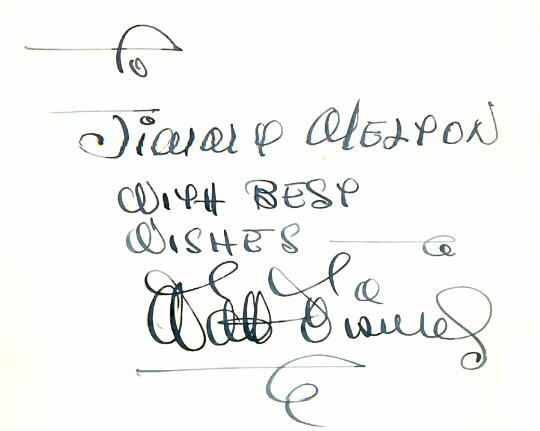 To
JIMMY WELTON
WITH BEST
WISHES —
Walt Disney